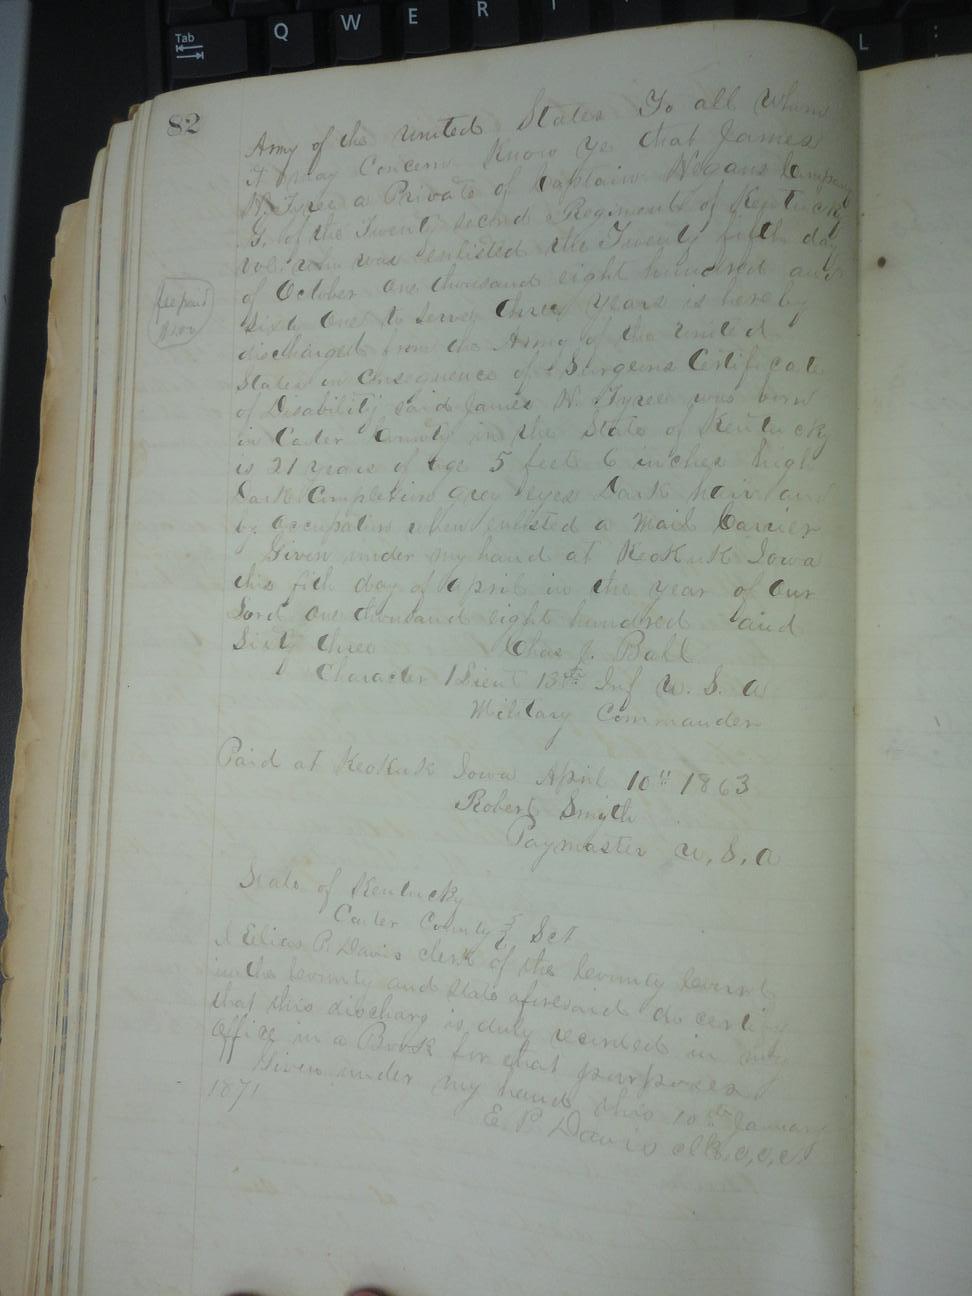 Tab
Q W E R T L :
82
Army of the United States To all Whom
it may Concern Know Ye that James
W. Tyree a Private of Captain Hogans Company
G. of the Twenty second Regiments of Kentucky
vol who was enlisted the Twenty fifth day
of October one thousand eight hundred and
Sixty One to Serve three Years is hereby
discharged from the Army of the United
States in Consequence of Surgeons Certificate
of Disability said James W. Tyree was born
in Carter County in the State of Kentucky
is 21 years of age 5 feet 6 inches high
Dark Complexion grey eyes Dark hair and
by Occupation when enlisted a Mail Carrier
Given under my hand at Keokuk Iowa
this fith day of April in the year of Our
Lord one thousand eight hundred and
Sixty three Chas J. Ball
Character 1 Lieut 13th Inf U. S. A
Military Commander
fee paid
Paid at Keokuk Iowa April 10th 1863
Robert Smyth
Paymaster U, S, A
State of Kentucky
Carter County Sct
I Elias P. Davis clerk of the County Court
in the County and State aforesaid do certify
that this discharg is duly recorded in my
office in a Book for that purposes
Given under my hand this 10th January
1871
E. P. Davis clk, c, c, c